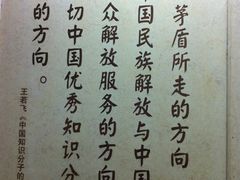 茅盾所走的方向
国民族解放与中国
众解放服务的方向
切中国优秀知识分
的方向。
王若飞《中国知识分子的